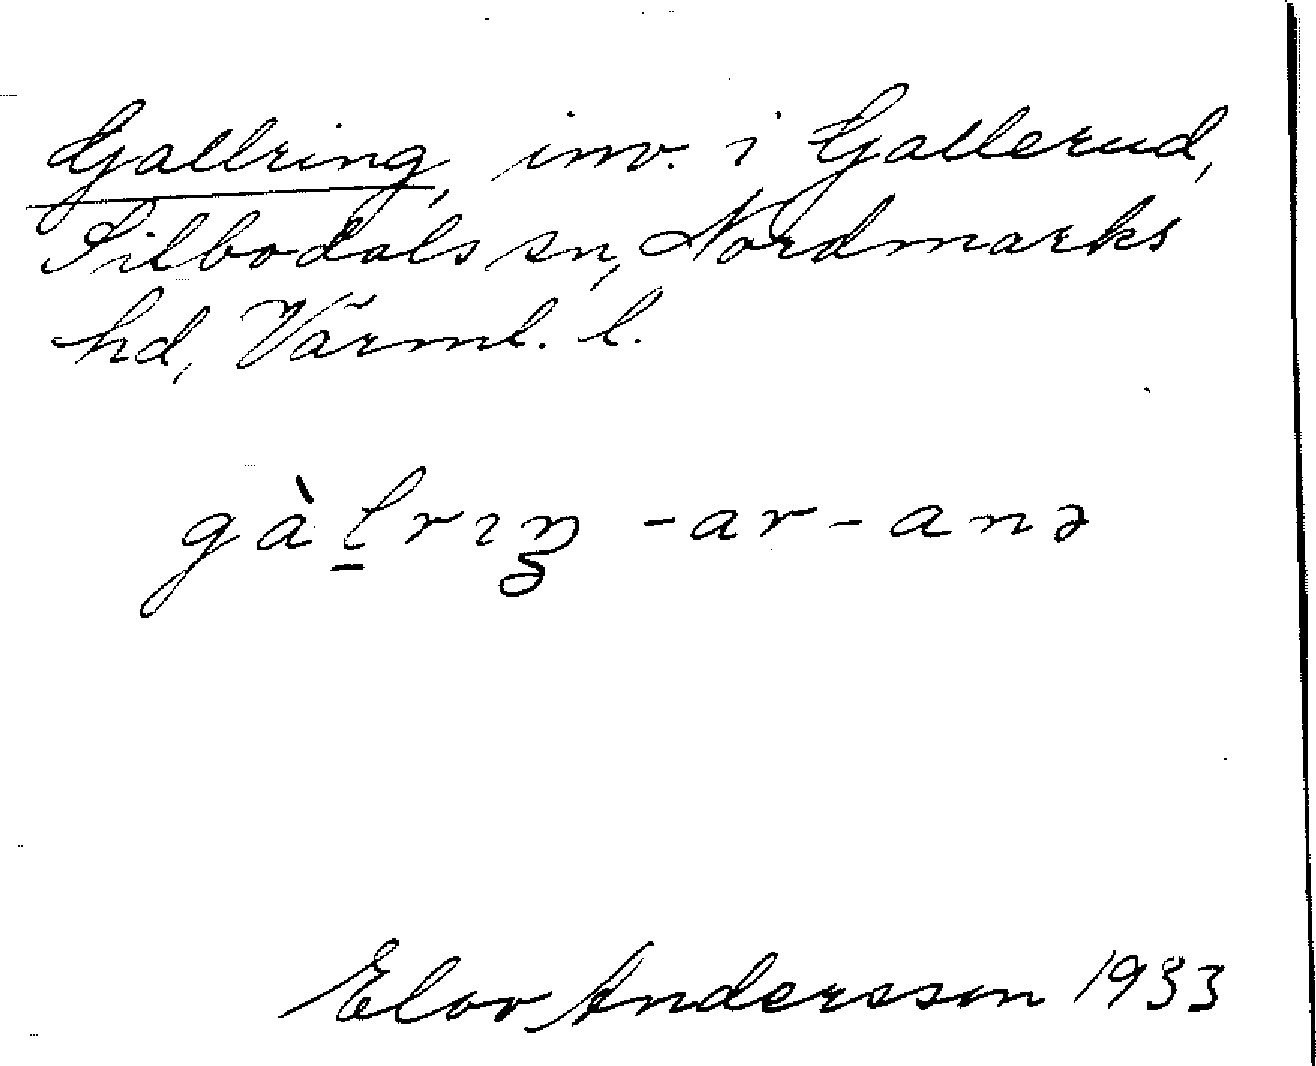 Gallring, inv. i Gallerud,
Silbodals sn, Nordmarks
hd, Värml. l.
gàl̠rıŋ -ar -anə
Elov Andersson 1933